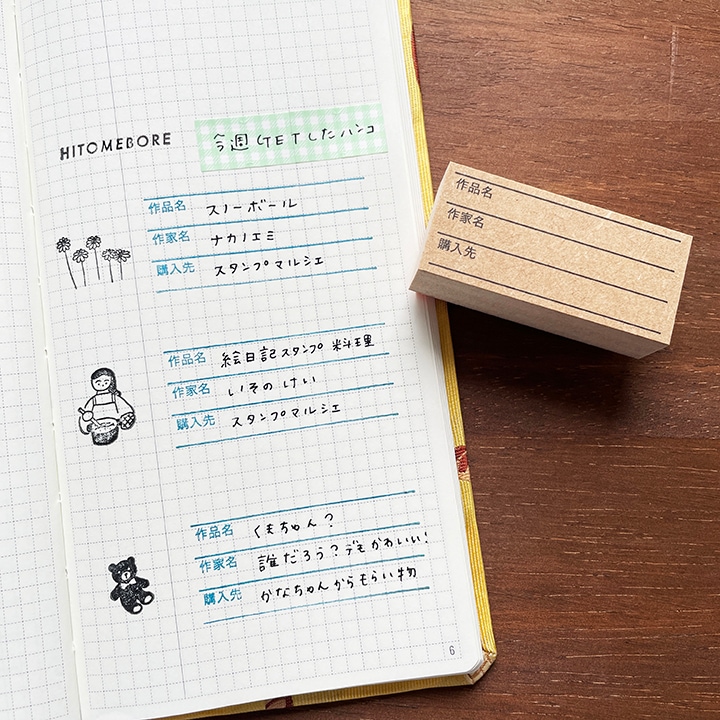 HITOMEBORE
今週GETしたハンコ
作品名 スノーボール
作家名 ナカノエミ
購入先 スタンプマルシェ
作品名 絵日記スタンプ 料理
作家名 いその けい
購入先 スタンプマルシェ
作品名 くまちゃん?
作家名 誰だろう?でもかわいい!
購入先 かなちゃんからもらい物
6
作品名
作家名
購入先